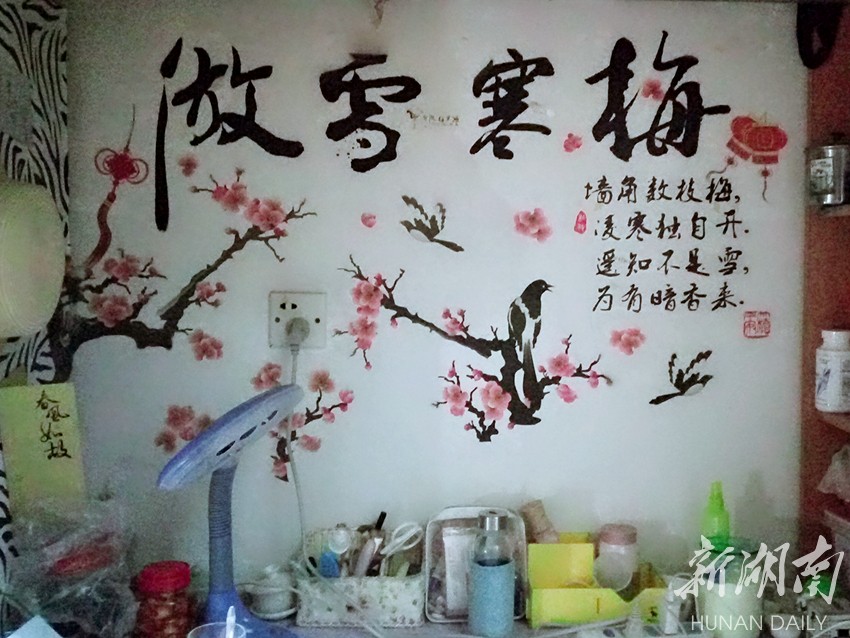 傲雪寒梅
墙角数枝梅,
凌寒独自开.
遥知不是雪,
为有暗香来.
春风如故
新湖南
HUNAN DAILY